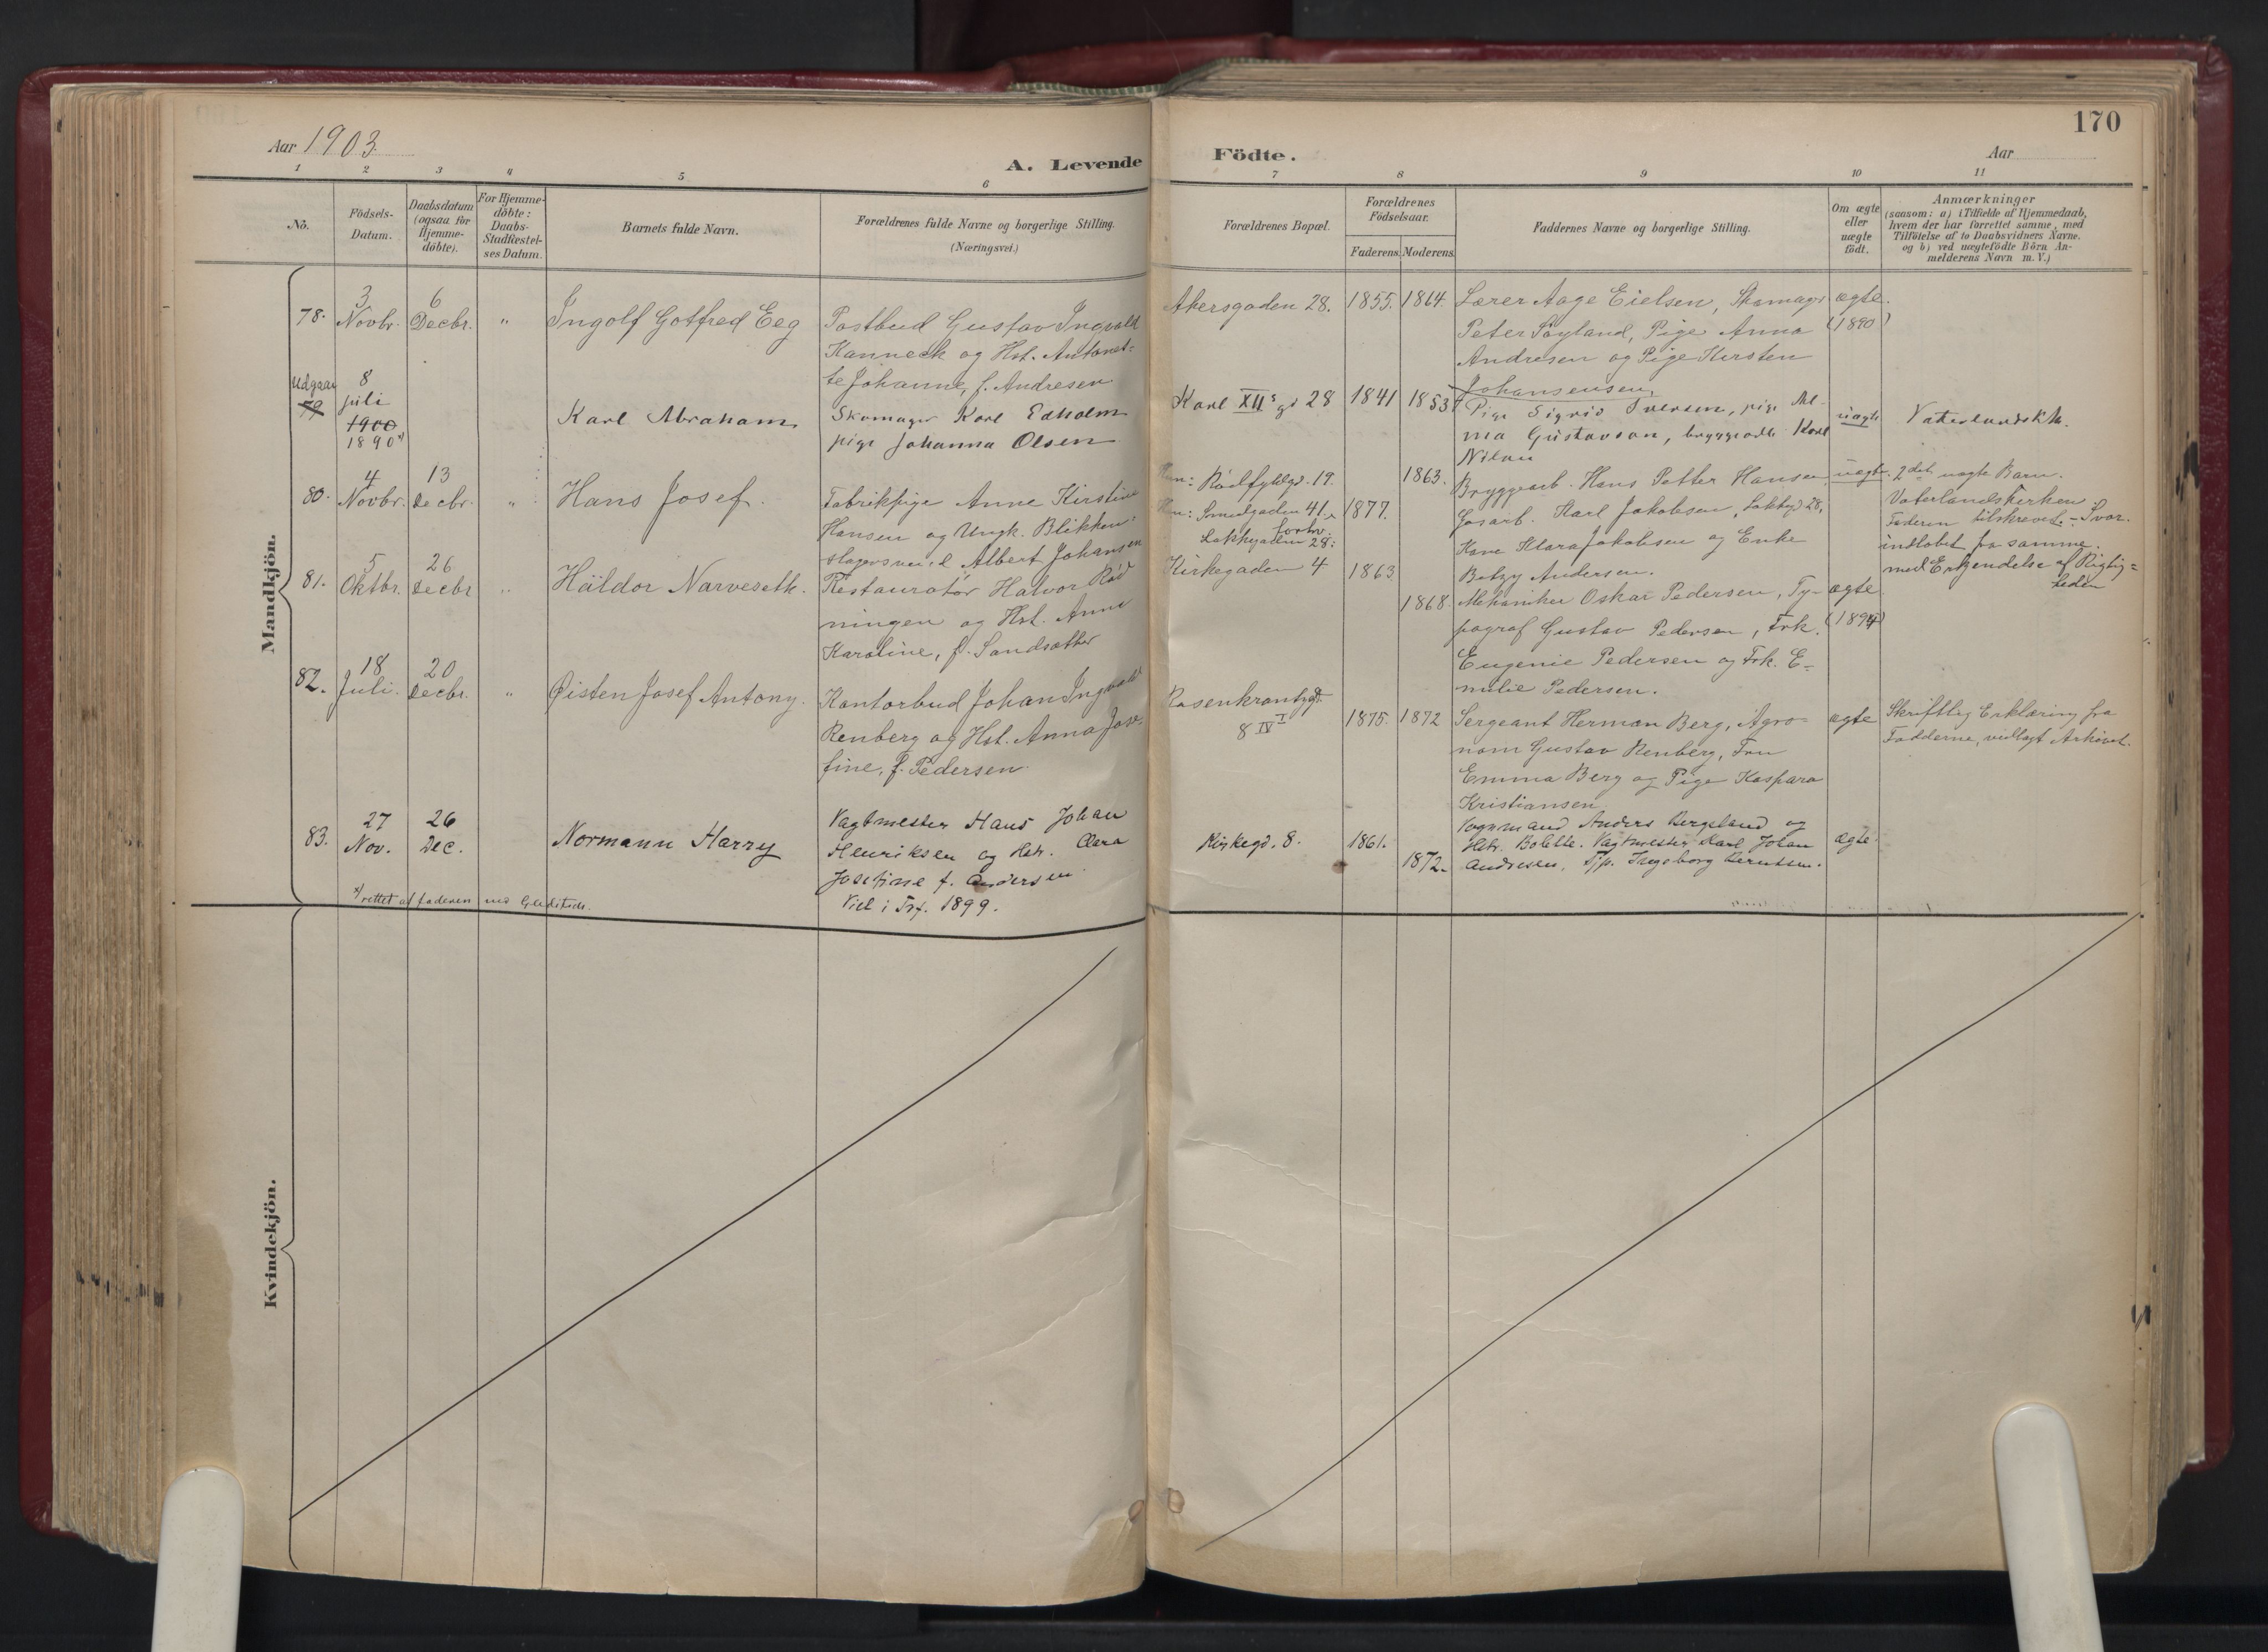 Aar 1903.
A. Levende
1 2 3 4 5 6
No.
Födsels-
Datum.
Daabsdatum
(ogsaa for
Hjemme-
döbte).
For Hjemme-
döbte:
Daabs-
Stadfæstel-
ses Datum.
Barnets fulde Navn.
Forældrenes fulde Navne og borgerlige Stilling.
(Næringsvei.)
Mandkjön.
78.
3
Novbr.
6
Decbr.
"
Ingolf Gotfred Eeg
Postbud Gustav Ingvald
Kanneck og Hst. Antonet-
te Johanne, f. Andresen.
Udgaar
79
8
juli
1900
1890 x)
Karl Abraham
Skomager Karl Edholm
pige Johanna Olsen
80.
4
Novbr.
13
Decbr.
"
Hans Josef.
Fabrikpige Anne Kirstine
Hansen og Ungk. Blikken-
slagersvend Albert Johansen
81.
5
Oktbr.
26
Decbr
"
Haldor Narveseth.
Restauratør Halvor Rød
ningen og Hst. Anne
Karoline, f. Sandsæther
82.
18
Juli.
20
Decbr.
"
Øisten Josef Antony.
Kontorbud Johan Ingvald
Renberg og Hst. Anna Jose-
fine, f. Pedersen.
83.
27
Nov.
26
Dec.
Normann Harry
Vagtmester Hans Johan
Henriksen og Hst. Clara
Josefine f. Andersen.
Viet i Trf. 1899.
x) rettet af faderen
Kvindekjön.
Födte.
170
Aar
7 8 9 10 11
Forældrenes Bopæl.
Forældrenes
Födselsaar.
Faderens. Moderens.
Faddernes Navne og borgerlige Stilling.
Om ægte
eller
uægte
födt.
Anmærkninger
(saasom: a) i Tilfælde af Hjemmedaab,
hvem der har forrettet samme, med
Tilföielse af to Daabsvidners Navne.
og b) ved uægtefödte Börn An-
melderens Navn m. V.)
Akersgaden 28.
1855. 1864.
Lærer Aage Eielsen, Skomager
Peter Søyland, Pige Anna
Andresen og Pige Kirsten
Johansensen.
ægte.
(1890)
Karl XII's gd 28
1841 1853
Pige Sigrid Iversen, pige Al-
ma Gustavson, bryggearb. Karl
Nilsen
uægte
Vaterlandsk.
Hun: Rødfyldgd. 19.
Han: Smedgaden 41.
forhv.
Lakkegaden 28.
1877.
1863.
Bryggearb. Hans Petter Hansen,
Gasarb. Karl Jakobsen, Lakkegd 28,
Kone Klara Jakobsen og Enke
Betzy Andersen.
uægte.
2det uægte Barn.
Vaterlandskirken
Faderen tilskrevet. - Svar.
indløbet fra samme.
med Erkjendelse af Rigtig-
heden
Kirkegaden 4
1863
1868.
Mekaniker Oskar Pedersen, Ty-
pograf Gustav Pedersen, Frk.
Eugenie Pedersen og Frk. E-
milie Pedersen.
ægte.
(1894)
Rosenkrantzgd.
8 IV I
1875. 1872
Sergeant Herman Berg, Agro-
nom Gustav Renberg, Fru
Emma Berg og Pige Kaspara
Kristiansen
ægte
Skriftlig Erklæring fra
Fadderne, vedlagt Arkivet.
Kirkegd. 8.
1861.
1872.
Vognmand Anders Bergeland og
Hst. Bolette. Vagtmester Karl Johan
Andresen, Tjp. Ingeborg Berntsen.
ægte.